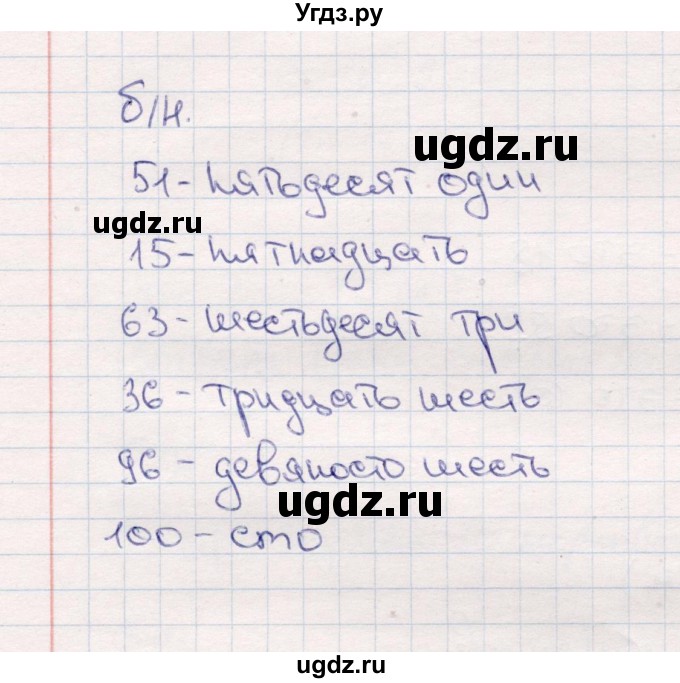 Угдз.ру
б/н.
ugdz.ru
51 - пятьдесят один
ugdz.ru
15 - пятнадцать
63 - шестьдесят три
36 - тридцать шесть
96 - девяносто шесть
ugdz.ru
100 - сто
ugdz.ru